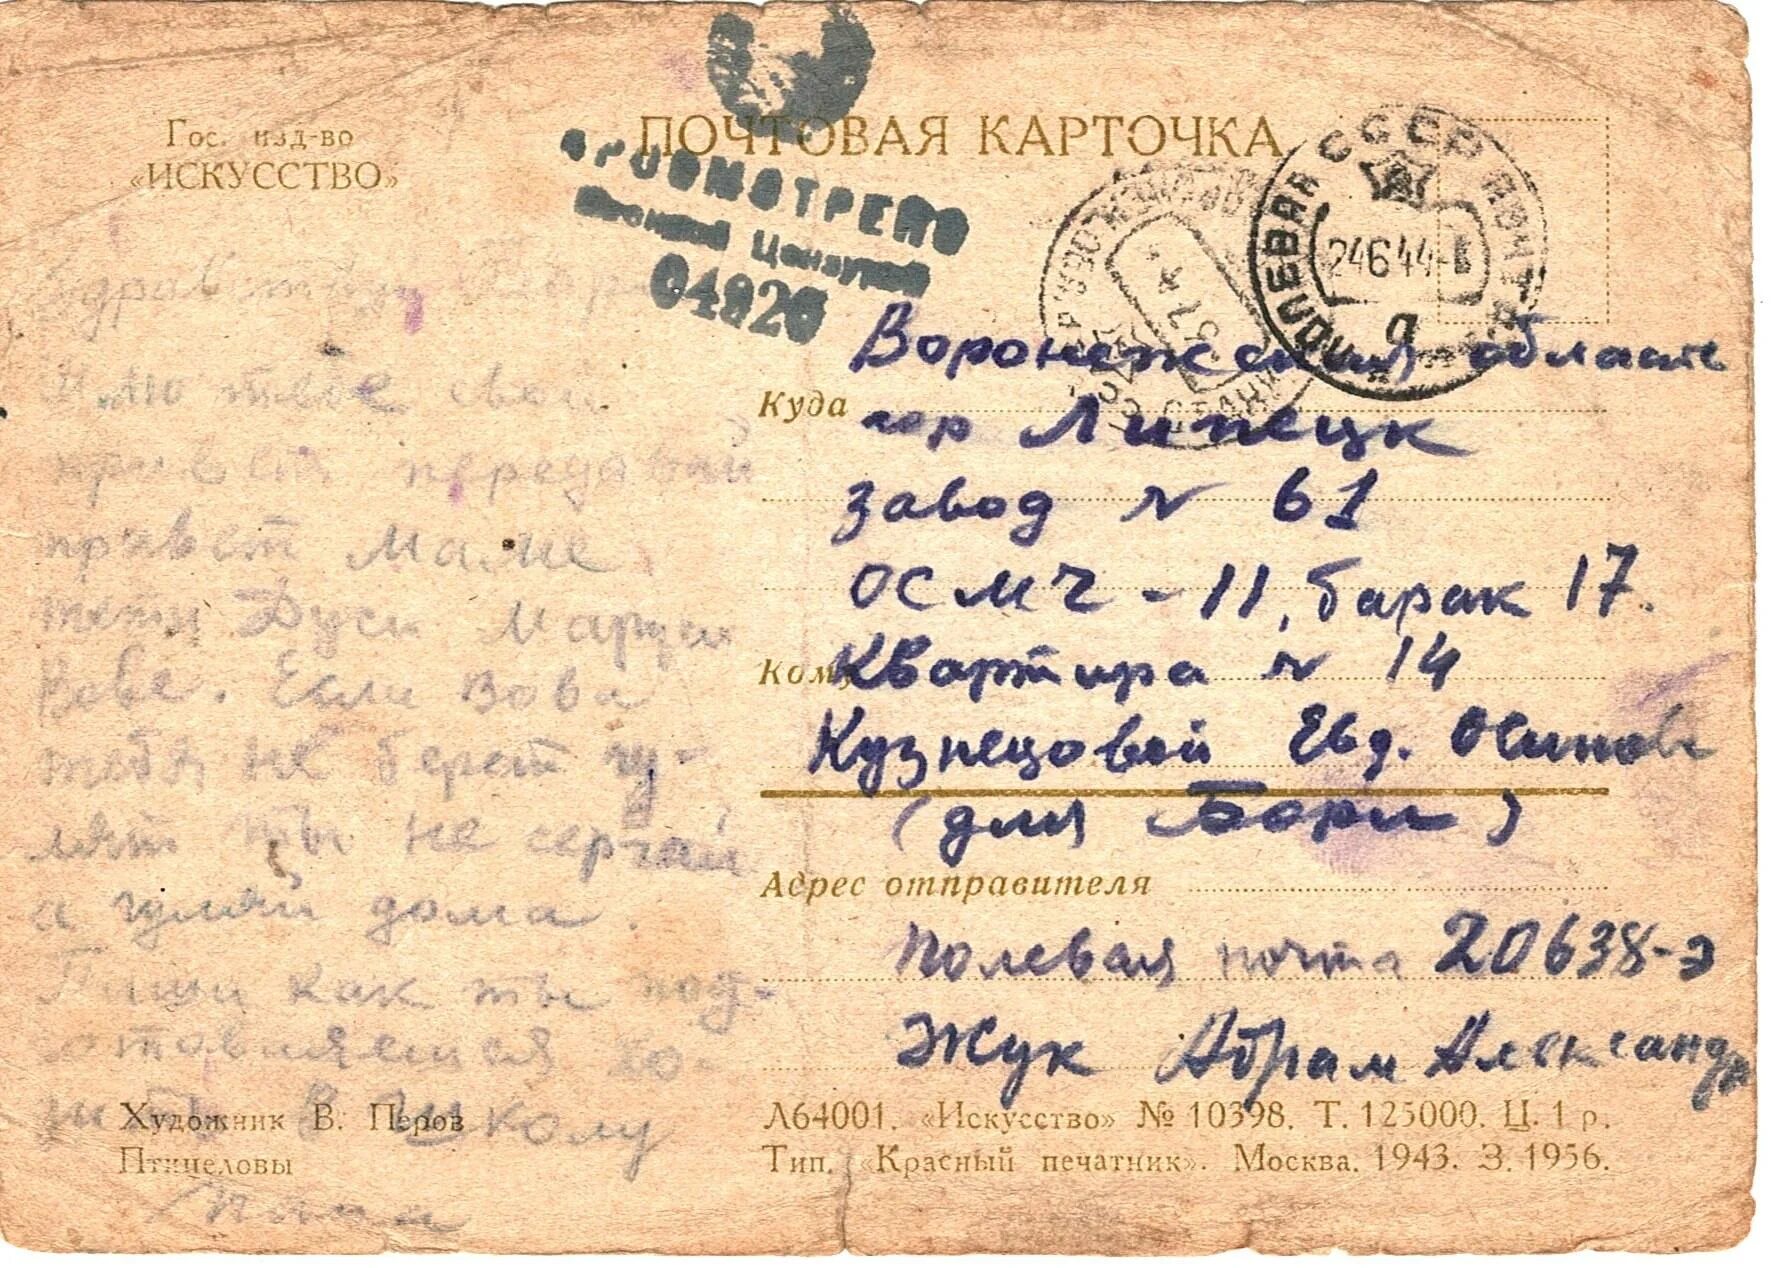 Гос. изд-во
«ИСКУССТВО»
ПОЧТОВАЯ КАРТОЧКА
ПРОСМОТРЕНО
Военной Цензурой
04826
СССР
ПОЛЕВАЯ ПОЧТА
24 6 44
а
Здравствуй Боря
Шлю тебе свой
привет передавай
привет Маме
тети Дуси Маруси
Вове. Если Вова
тебя не берет гу-
лять ты не серчай
а гуляй дома.
Пиши как ты под-
отовляешся хо-
дить в школу
папа
Куда
Воронежская область
гор Липецк
завод N 61
ОСМЧ - 11, барак 17.
Кому
Квартира N 14
Кузнецовой Евд. Осипов
(для Бори)
Адрес отправителя
Полевая почта 20638-э
Жук Абрам Александр
Художник В. Перов
Птицеловы
Л64001. «Искусство» № 10398. Т. 125000. Ц. 1 р.
Тип. «Красный печатник». Москва. 1943. З. 1956.